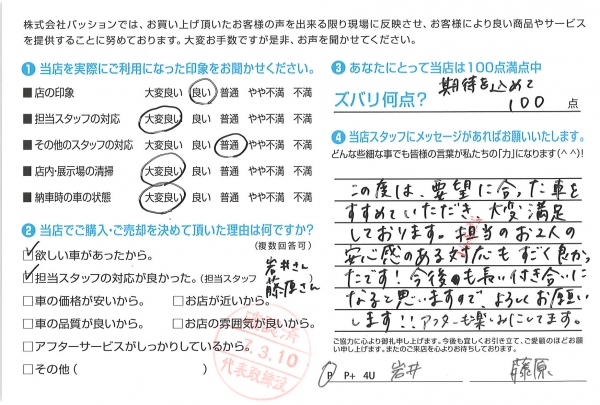 株式会社パッションでは、お買い上げ頂いたお客様の声を出来る限り現場に反映させ、お客様により良い商品やサービス
を提供することに努めております。大変お手数ですが是非、お声を聞かせてください。
❶ 当店を実際にご利用になった印象をお聞かせください。
■店の印象 大変良い 良い 普通 やや不満 不満
■担当スタッフの対応 大変良い 良い 普通 やや不満 不満
■その他のスタッフの対応 大変良い 良い 普通 やや不満 不満
■店内・展示場の清掃 大変良い 良い 普通 やや不満 不満
■納車時の車の状態 大変良い 良い 普通 やや不満 不満
❷ 当店でご購入・ご売却を決めて頂いた理由は何ですか?
(複数回答可)
欲しい車があったから。
岩井さん
担当スタッフの対応が良かった。(担当スタッフ 藤原さん
□車の価格が安いから。 □お店が近いから。
□車の品質が良いから。 □お店の雰囲気が良いから。
□アフターサービスがしっかりしているから。
□その他 ( )
7.3.10
代表取締役
❸ あなたにとって当店は100点満点中
期待を込めて
ズバリ何点? 100 点
❹ 当店スタッフにメッセージがあればお願いいたします。
どんな些細な事でも皆様の言葉が私たちの「力」になります(^ ^)!
この度は、要望に合った車を
すすめていただき、大変満足
しております。担当のお2人の
安心感のある対応もすごく良かっ
たです!今後も長い付き合いに
なると思いますので よろしくお願い
します!!アフターも楽しみにしてます。
ご協力に心より御礼申し上げます。今後も宜しくお引き立て、ご愛顧のほどお願
い申し上げます。またのご来店を心よりお待ちしております。
P P+ 4U 岩井 藤原